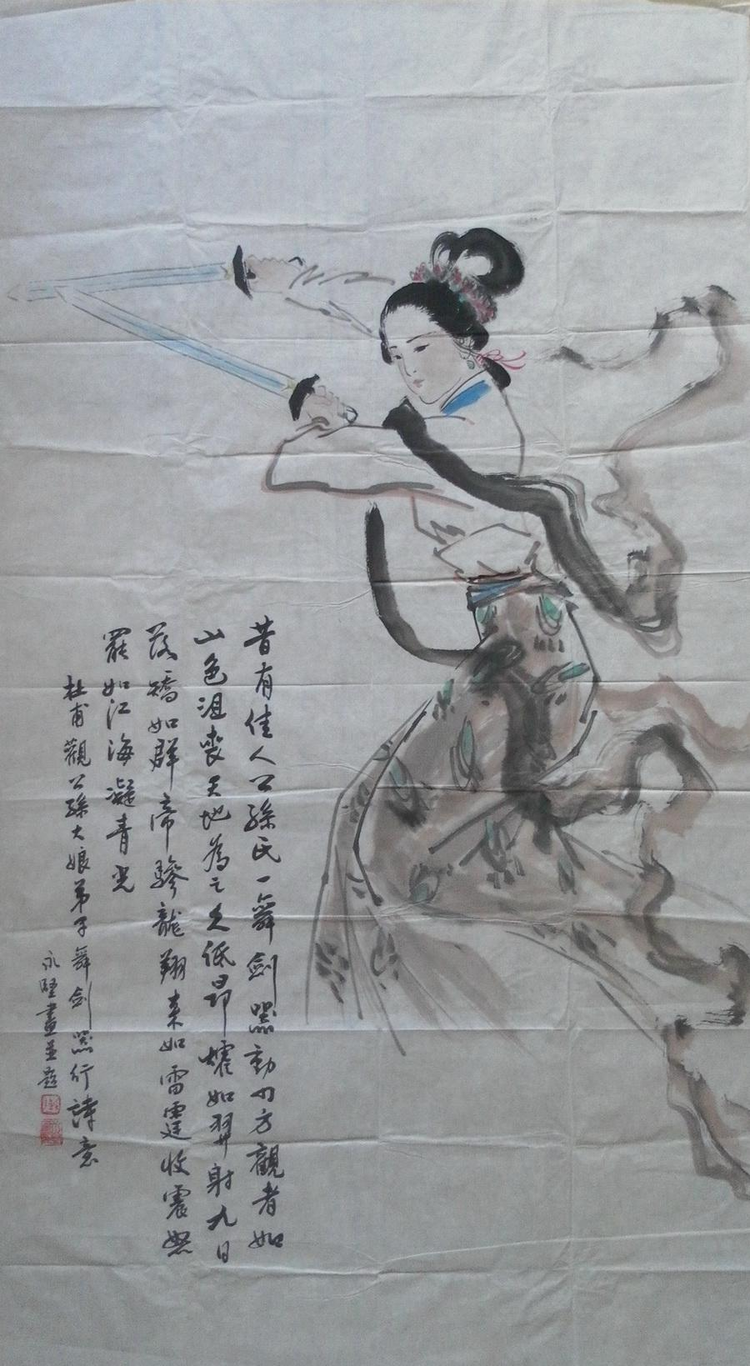 昔有佳人公孫氏一舞劍器動四方觀者如
山色沮喪天地為之久低昂㸌如羿射九日
落矯如群帝驂龍翔来如雷霆收震怒
罷如江海凝青光
杜甫觀公孫大娘弟子舞劍器行詩意
永堅畫並題